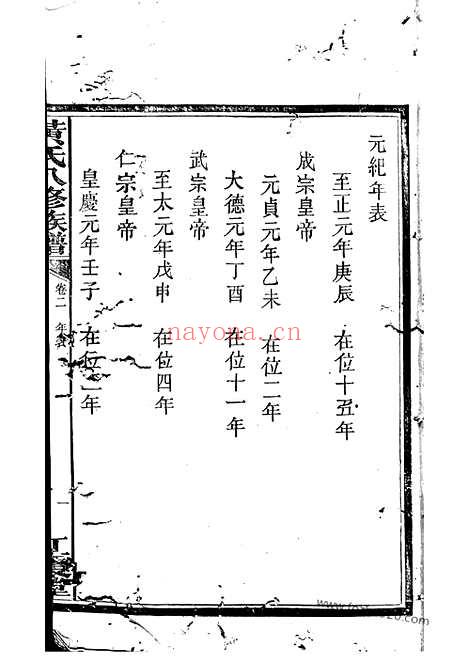 元紀年表
至正元年庚辰 在位十五年
成宗皇帝
元貞元年乙未 在位二年
大德元年丁酉 在位十一年
武宗皇帝
至大元年戊申 在位四年
仁宗皇帝
皇慶元年壬子 在位二年
黃氏八修族譜 卷二 年表
nayona.cn